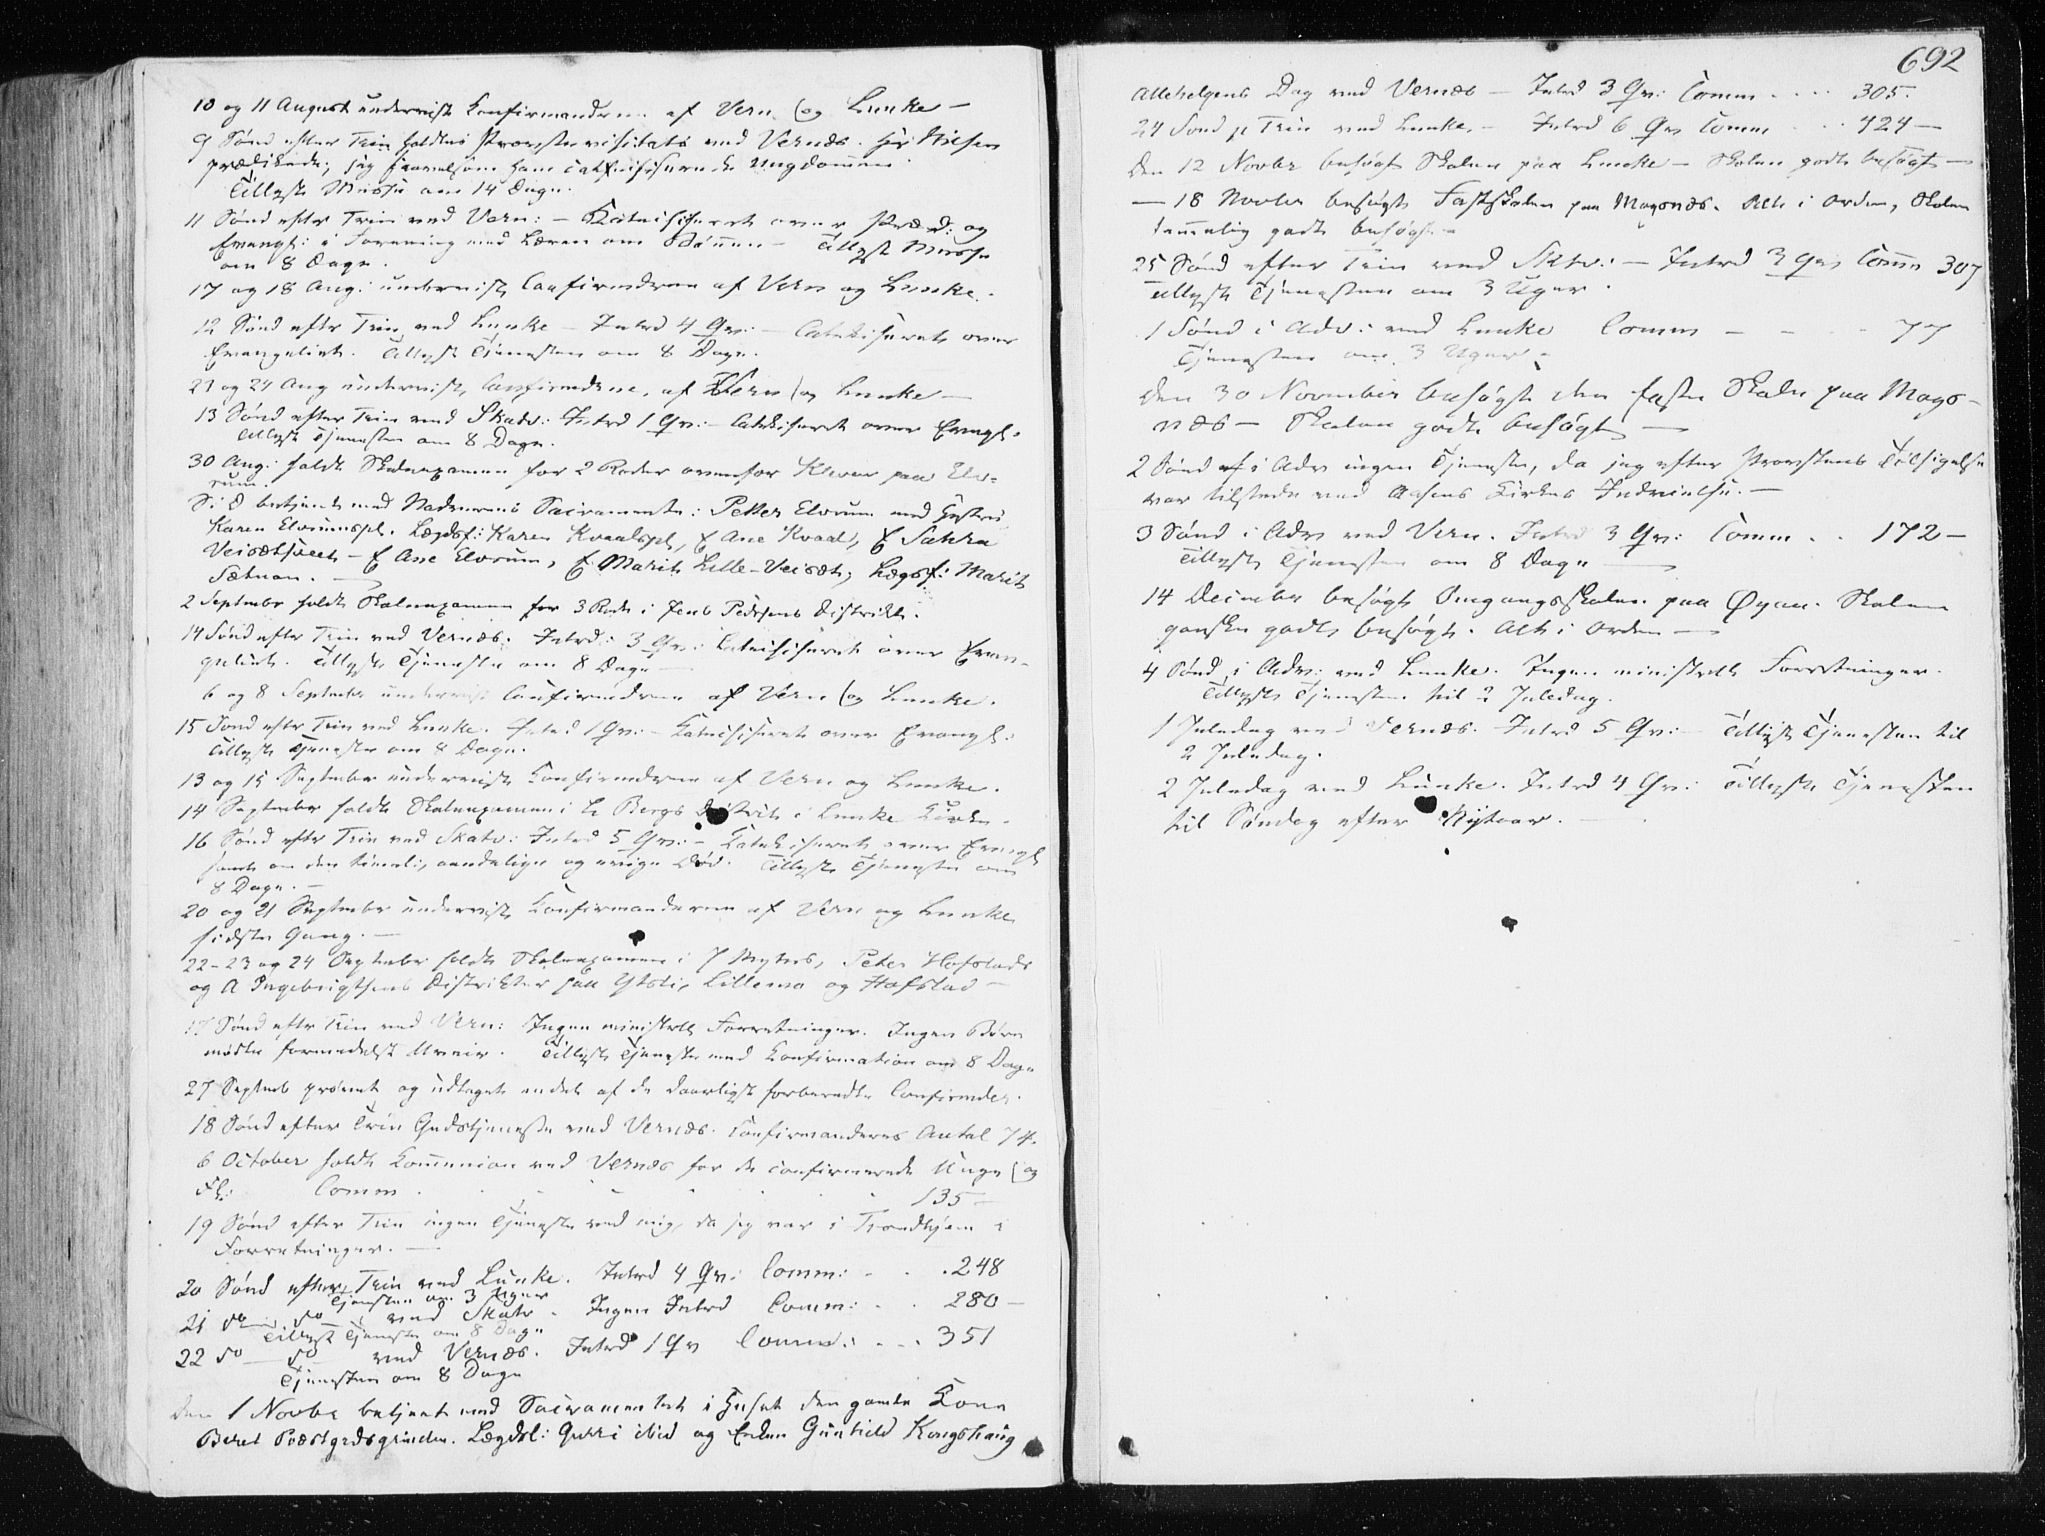 10 og 11 August underviist Confirmanderne af Vern. og Lunke –
9 Sønd efter Trin holdtes Provstevisitats ved Vernæs.
prædikede; jeg saavelsom han catechiserede Ungdommen.
Tillyst Messe om 14 Dage.
11 Sønd efter Trin ved Vern: – Katechiseret over Præd: og
Evangl: i Forening med Læren om Bønnen – Tillyst Messe
om 8 Dage.
17 og 18 Aug: underviist Confirmdrne af Vern og Lunke.
12 Sønd eftr Trin ved Lunke – Introd 4 Qv: – Catekiseret over
Evangeliet. Tillyst Tjenesten om 8 Dage.
21 og 24 Aug underviist Confirmdrne, af Vern og Lunke –
13 Sønd efter Trin ved Skatv: Introd 1 Qv: – Catekiseret over Evangl.
Tillyst Tjenesten om 8 Dage.
30 Aug: holdt Skoleexamen for 2 Roder ovenfor Kleven paa Elv-
rum.
S: D betjent med Nadverens Sacramente: Petter Elvrum med Hustru
Karen Elvrumspl. Lægdsl: Karen Kvaalspl, E Ane Kvaal, E Sahra
Veisætsveet – E Ane Elvrum, E Marit Lille-Veisæt; Lægdsl: Marit
Sætnan. –
2 Septmbr holdt Skoleexamen for 3 Rode i Jens Pedersens Distrikt.
14 Sønd eftr Trin ved Vernæs. Introd: 3 Qv: Catechiseret over Evan-
geliet. Tillyst Tjeneste om 8 Dage –
6 og 8 Septmbr underviist Confirmdrne af Vern og Lunke.
15 Sønd eftr Trin ved Lunke. Introd 1 Qv: – Katechiseret over Evangl:
Tillyst Tjeneste om 8 Dage.
13 og 15 Septmbr underviist Confirmdrne af Vern og Lunke.
14 Septmbr holdt Skoleexamen i L Bergs Distrikt i Lunke Kirke.
16 Sønd eftr Trin ved Skatv: Introd 5 Qv: – Katekiseret over Evangl
samt om den timeli, aandelige og evige Død. Tillyst Tjeneste om
8 Dage. –
20 og 21 Septmbr underviist Confirmanderne af Vern og Lunke
sidste Gang. –
22–23 og 24 Septmbr holdt Skoleexamen i Peter Hofstads
og A Ingebrigtsens Distrikter paa Ytsti, Lillemo og Hofstad –
17 Sønd eftr Trin ved Vern: Ingen ministrlle Forretninger. Ingen Børn
mødte formedelst Uveir. Tillyst Tjeneste med Confirmation om 8 Dage
27 Septmb prøvet og udtaget endel af de daarligst forberedte Confirmdes.
18 Sønd efter Trin Gudstjeneste ved Vernæs. Confirmanderes Antal 74.
6 October holdt Communion ved Vernæs for de confirmerede Unge og
Fl: Comm . . . . . . . 135 –
19 Sønd efter Trin ingen Tjeneste ved mig, da jeg var i Trondhjem i
Forretninger. –
20 Sønd efter Trin ved Lunke. Introd 4 Qv: Comm: . . . 248
Tjenesten om 3 Uger
21 do do ved Skatv – Ingen Introd Comm: . . 280 –
Tillyst Tjeneste om 8 Dage
22 do – do ved Vernæs. Introd 1 Qv Comm: . . . 351
Tjenesten om 8 Dage
Den 1 Novbr betjent med Sacramentet i Huset den gamle Kone
Beret Præstgrdsgrinden. Lægdsl: Gurri ibid og Enken Gunhild Kongshaug
692
Allehelgens Dag ved Vernæs – Introd 3 Qv: Comm . . . . 305.
24 Sønd p Trin ved Lunke. – Introd 6 Qv Comm . . . 424 –
Den 12 Novbr besøgt Skolen paa Lunke – Skolen godt besøgt –
– 18 Novbr besøgt Fastskolen paa Magsnæs. Alt i Orden, Skolen
temmelig godt besøgt –
25 Sønd efter Trin ved Sktv: – Introd 3 Qv; Comm 307
Tillyst Tjenesten om 3 Uger.
1 Sønd i Adv: ved Lunke Comm – – – 77
Tjenesten om 3 Uger –
Den 30 November besøgt den faste Skole paa Mags-
næs – Skolen godt besøgt –
2 Sønd i Adv ingen Tjeneste, da jeg efter Provstens Tilsigelse
var tilstede ved Aasens Kirkes Indvielse. –
3 Sønd i Adv ved Vern. Introd 3 Qv: Comm . . 172 –
Tillyst Tjenesten om 8 Dage –
14 Decembr besøgt Omgangsskolen paa Øyan. Skolen
ganske godt besøgt. Alt i Orden –
4 Sønd i Adv: ved Lunke. Ingen ministrlle Forretninger.
Tillyst Tjenesten til 2 Juledag.
1 Juledag ved Vernæs. Introd 5 Qv: – Tillyst Tjenesten til
2 Juledag.
2 Juledag ved Lunke. Introd 4 Qv: Tillyst Tjenesten
til Søndag efter Nytaar. –